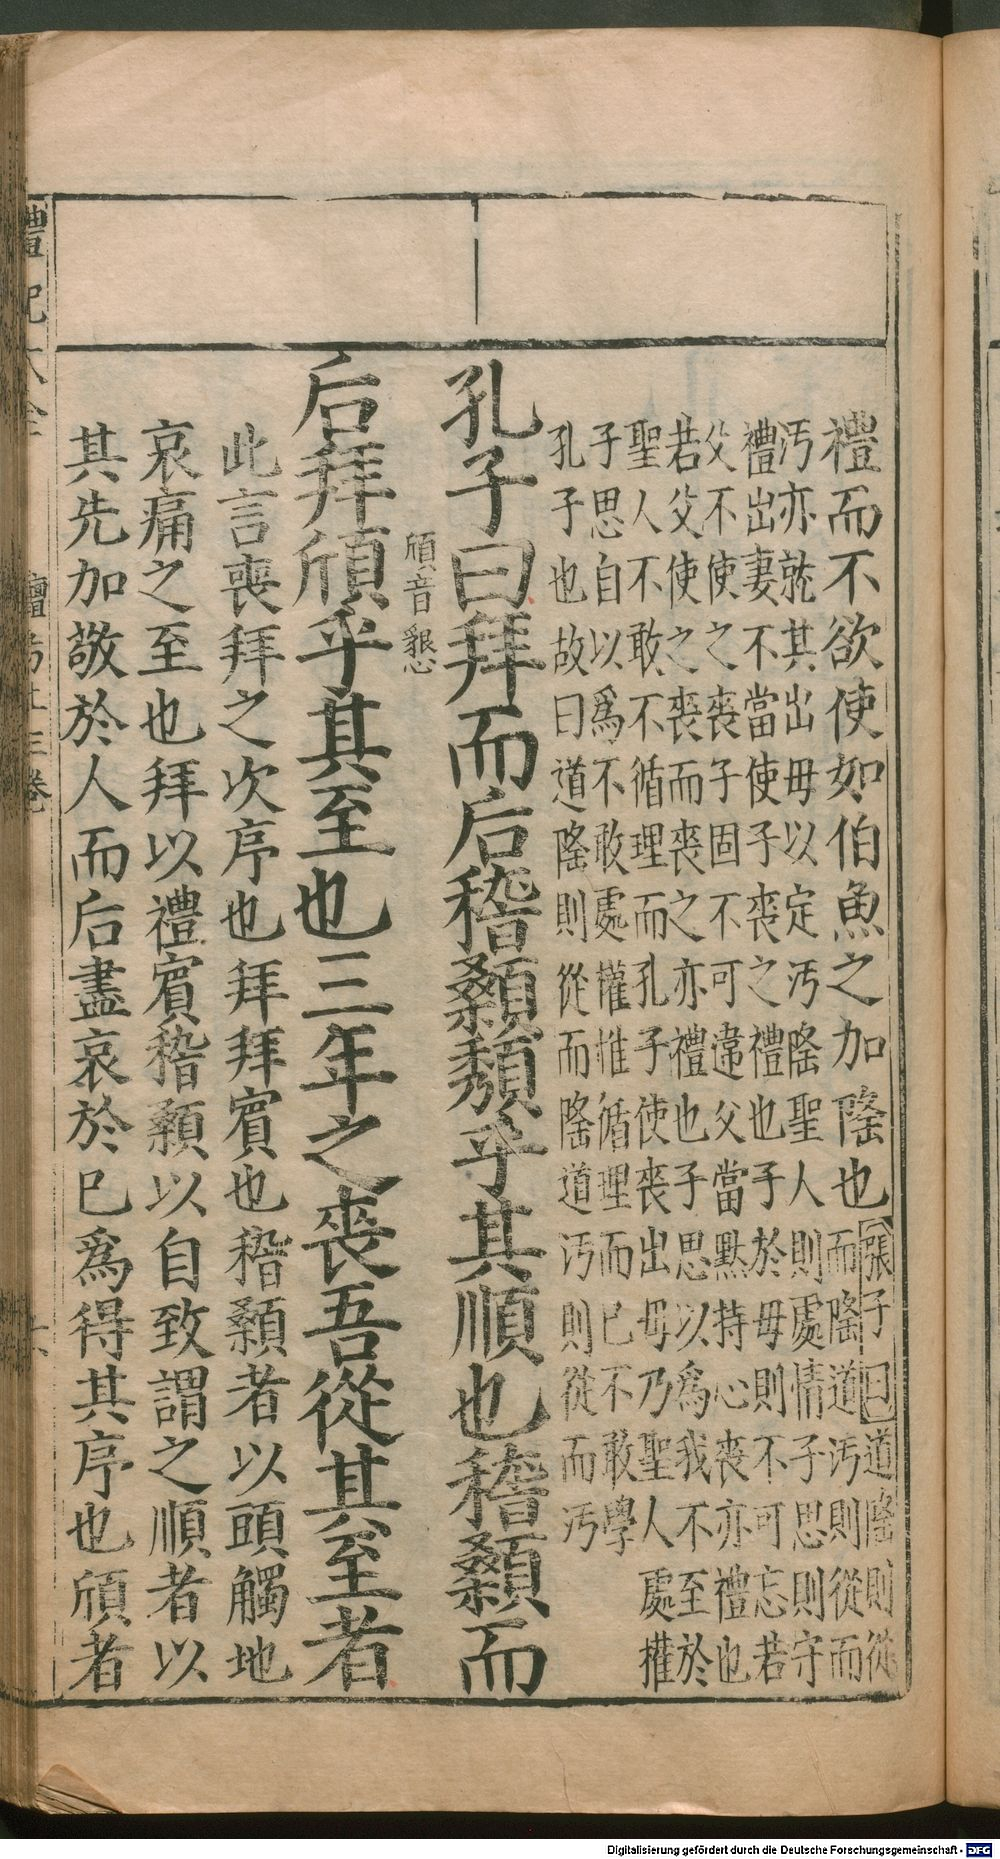 禮而不欲使如伯魚之加隆也張子曰道隆則從
而隆道汚則從而
汚亦就其出母以定汚隆聖人則處情子思則守
禮出妻不當使子喪之禮也子於母則不可忘若
父不使之喪子固不可違父當黙持心喪亦禮也
若父使之喪而喪之亦禮也子思以爲我不至於
聖人不敢不循理而孔子使喪出母乃聖人處權
子思自以爲不敢處權惟循理而已不敢學
孔子也故曰道隆則從而隆道汚則從而汚
孔子曰拜而后稽顙頹乎其順也稽顙而
頎音懇
后拜頎乎其至也三年之喪吾從其至者
此言喪拜之次序也拜拜賓也稽顙者以頭觸地
哀痛之至也拜以禮賓稽顙以自致謂之順者以
其先加敬於人而后盡哀於已爲得其序也頎者
禮記大全 檀弓上三卷
Digitalisierung gefördert durch die Deutsche Forschungsgemeinschaft - DFG